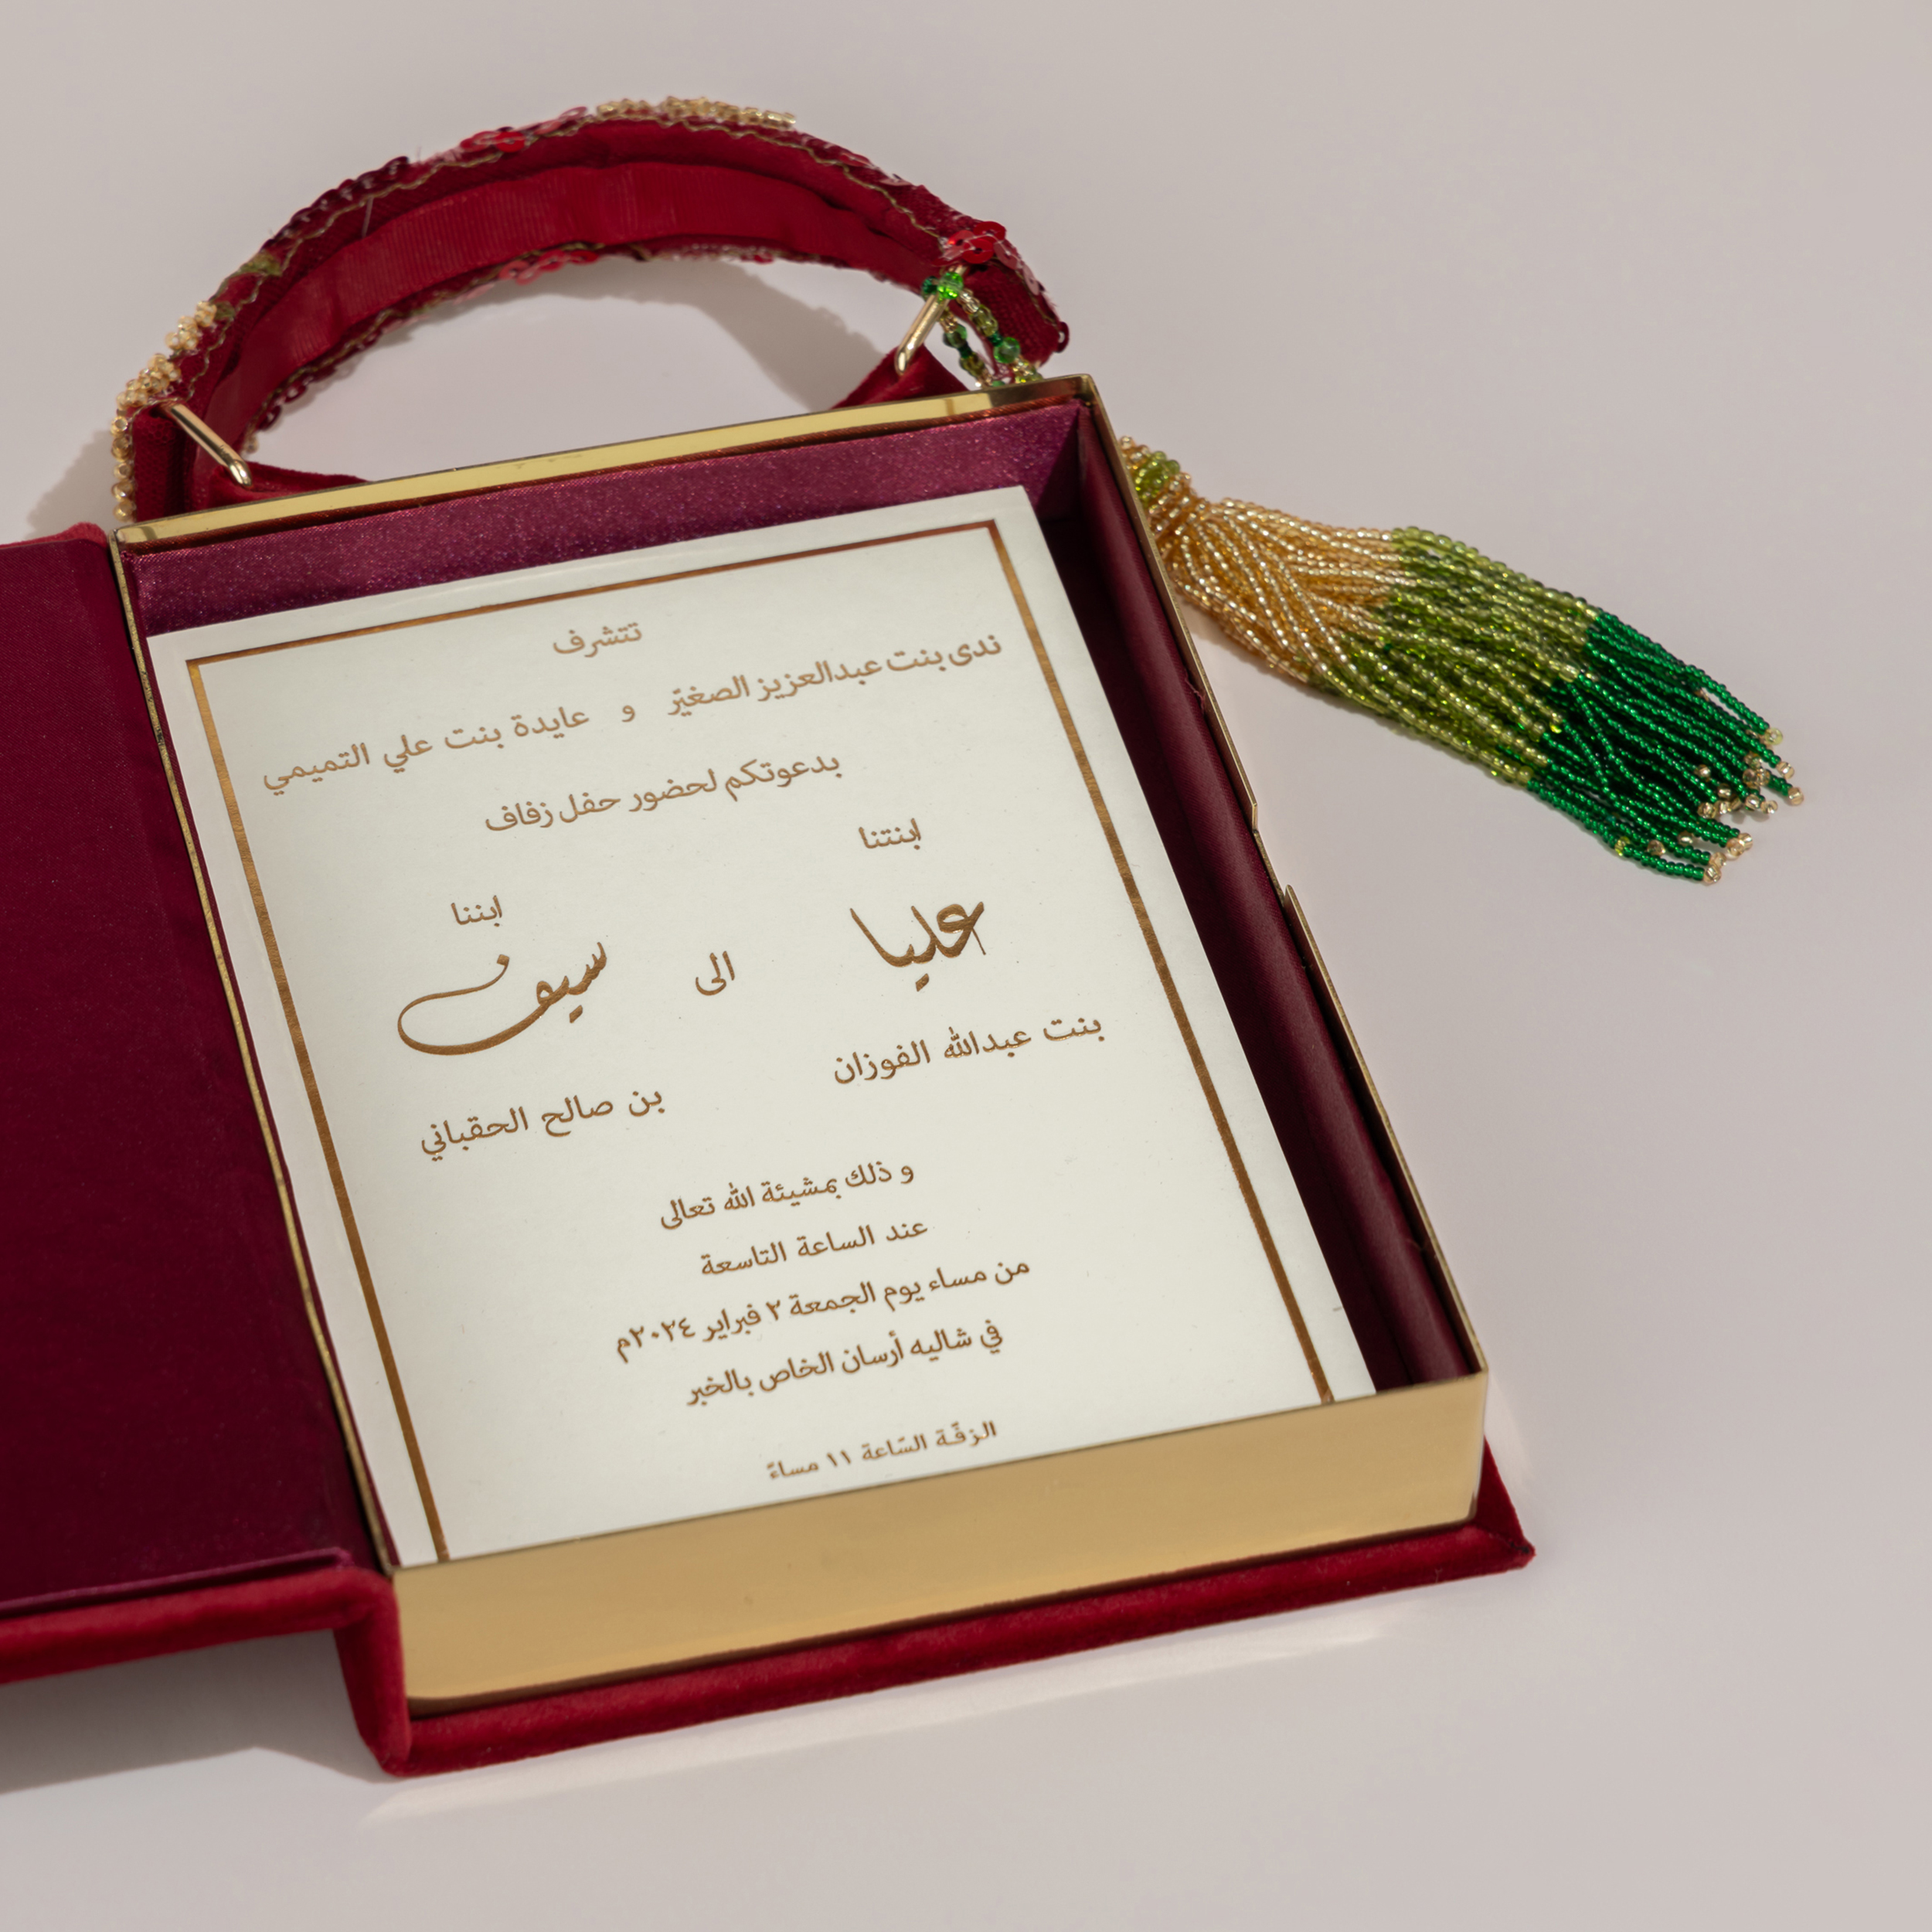 تتشرف
ندى بنت عبدالعزيز الصغيّر و عايدة بنت علي التميمي
بدعوتكم لحضور حفل زفاف
ابنتنا ابننا
عليا الى سيف
بنت عبدالله الفوزان بن صالح الحقباني
و ذلك بمشيئة الله تعالى
عند الساعة التاسعة
من مساء يوم الجمعة ٢ فبراير ٢٠٢٤م
في شاليه أرسان الخاص بالخبر
الزفّة السّاعة ١١ مساءً